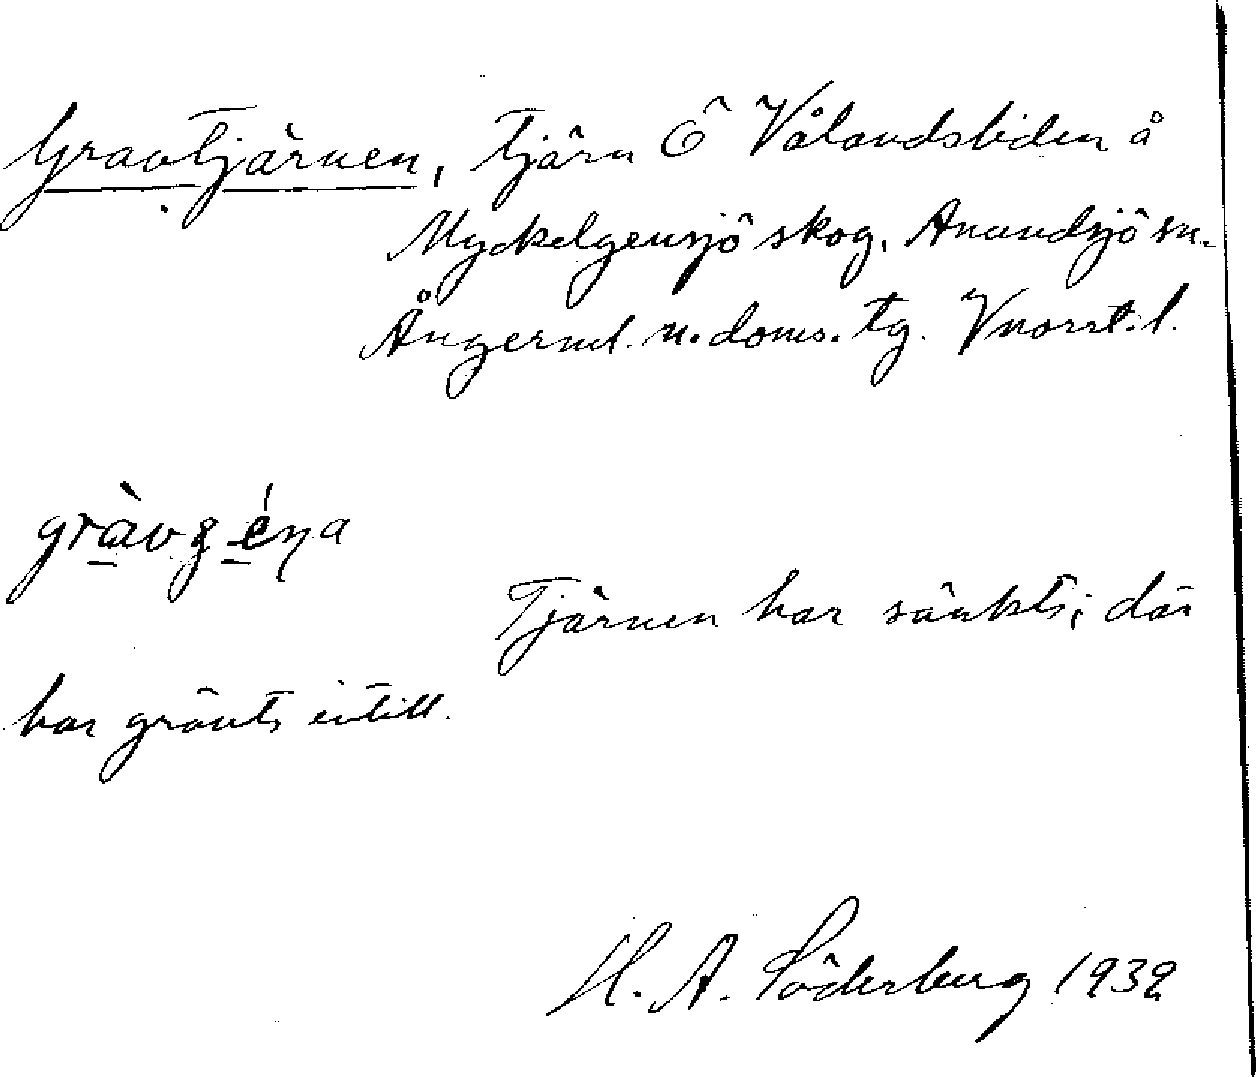 Gravtjärnen, tjärn Ö Vålandsliden å
Myckelgensjö skog, Anundsjö sn.
Ångerml. n. doms. tg. Vnorrl. l.
Tjärnen har sänkts; där
har grävts intill.
H. A. Söderberg 1932